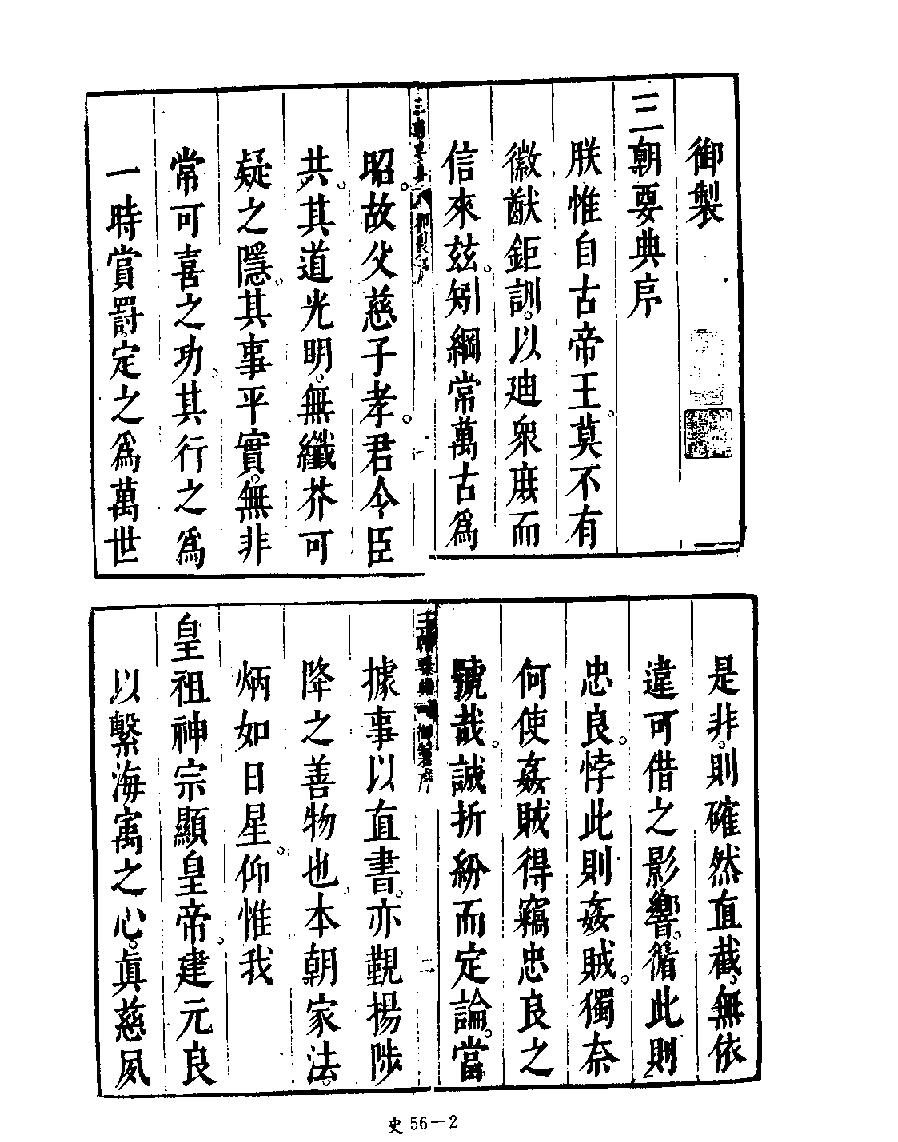 御製
三朝要典序
朕惟自古帝王莫不有
徽猷鉅訓以迪衆庶而
信來茲矧綱常萬古爲
昭故父慈子孝君令臣
共其道光明無纖芥可
疑之隱其事平實無非
常可喜之功其行之爲
一時賞罰定之爲萬世
是非則確然直截無依
違可借之影響循此則
忠良悖此則姦賊獨奈
何使姦賊得竊忠良之
號哉誠折紛而定論當
據事以直書亦覲揚陟
降之善物也本朝家法
炳如日星仰惟我
皇祖神宗顯皇帝建元良
以繫海㝢之心眞慈夙
史 56－2